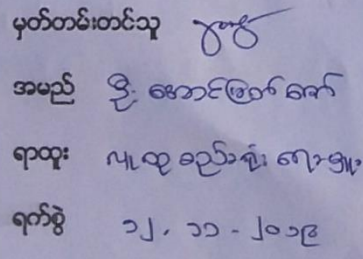 မှတ်တမ်းတင်သူ
အမည် ဦး အောင်မြတ်ကျော်
ရာထူး လူထု စည်းရုံး ရေးမှူး
ရက်စွဲ ၁၂. ၁၁ - ၂၀၁၉